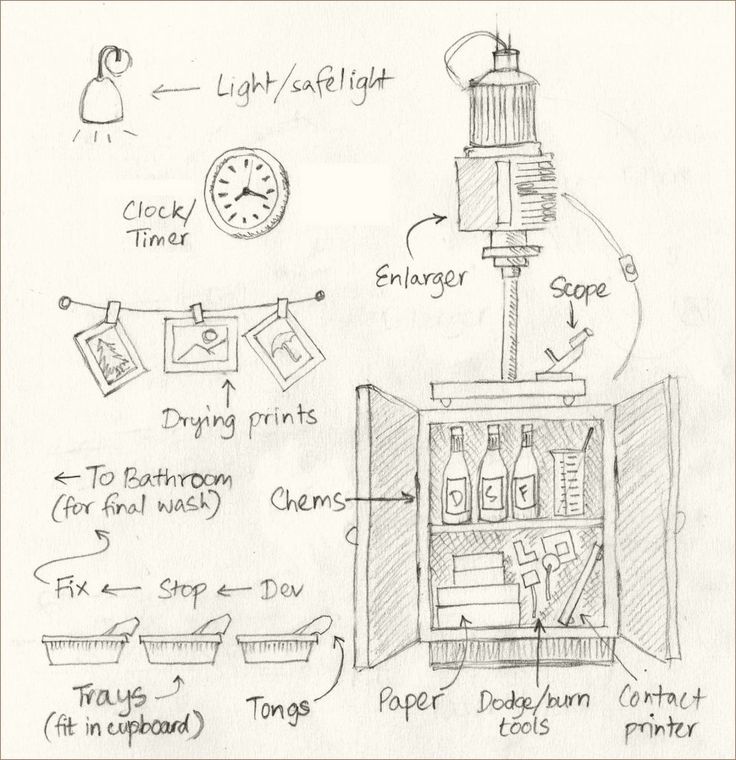 Light/safelight
Clock/
Timer
Enlarger
Scope
Drying prints
← To Bathroom
(for final wash)
Chems
D S F
Fix ← Stop ← Dev
Trays
(fit in cupboard)
Tongs
Paper
Dodge/burn
tools
Contact
printer